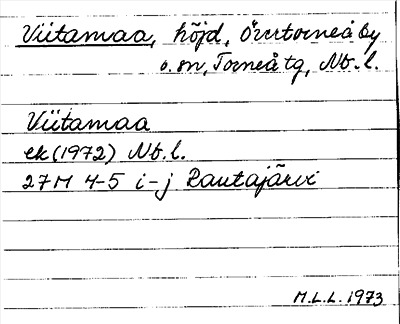 Viitamaa, höjd, Övertorneå by
o. sn, Torneå tg, Nb. l.
Viitamaa
ek (1972) Nb. l.
27M 4-5 i-j Rautajärvi
M.L.L. 1973